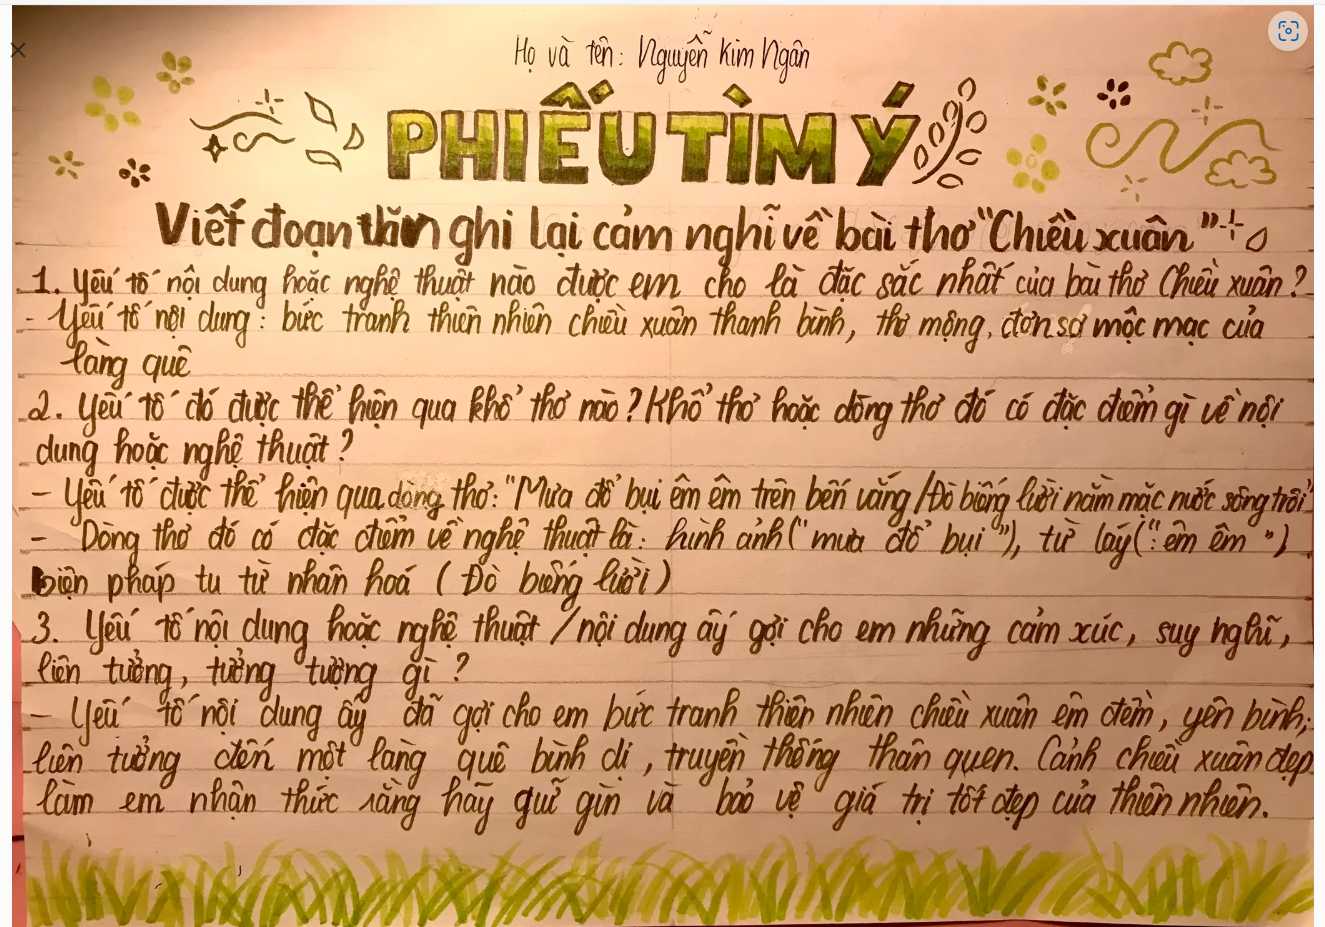 Họ và tên: Nguyễn Kim Ngân
PHIẾU TÌM Ý
Viết đoạn văn ghi lại cảm nghĩ về bài thơ "Chiều xuân"
1. Yếu tố nội dung hoặc nghệ thuật nào được em cho là đặc sắc nhất của bài thơ Chiều xuân?
- Yếu tố nội dung: bức tranh thiên nhiên chiều xuân thanh bình, thơ mộng, đơn sơ mộc mạc của
làng quê
2. Yếu tố đó được thể hiện qua khổ thơ nào? Khổ thơ hoặc dòng thơ đó có đặc điểm gì về nội
dung hoặc nghệ thuật?
- Yếu tố được thể hiện qua dòng thơ: "Mưa đổ bụi êm êm trên bến vắng/Đò biếng lười nằm mặc nước sông trôi"
- Dòng thơ đó có đặc điểm về nghệ thuật là: hình ảnh ("mưa đổ bụi"), từ láy (": êm êm")
biện pháp tu từ nhân hoá (Đò biếng lười)
3. Yếu tố nội dung hoặc nghệ thuật /nội dung ấy gợi cho em những cảm xúc, suy nghĩ,
liên tưởng, tưởng tượng gì?
- Yếu tố nội dung ấy đã gợi cho em bức tranh thiên nhiên chiều xuân êm đềm, yên bình;
liên tưởng đến một làng quê bình dị, truyền thống thân quen. Cảnh chiều xuân đẹp
làm em nhận thức rằng hãy giữ gìn và bảo vệ giá trị tốt đẹp của thiên nhiên.